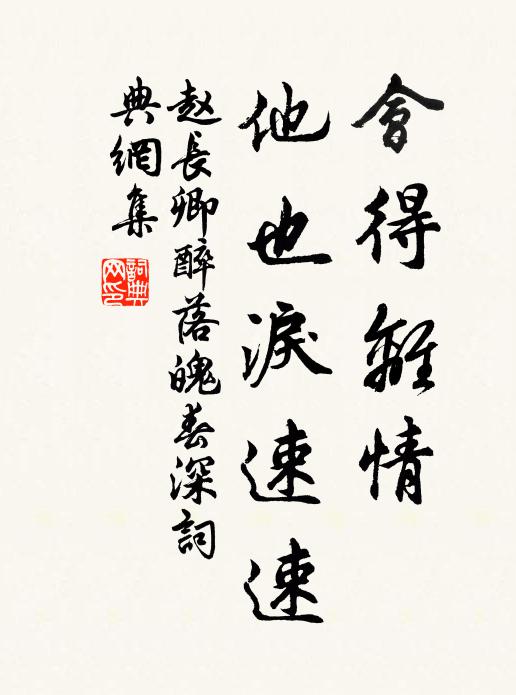 會得離情
他也淚速速
赵長卿醉落魄春深詞
典網集
詞典
网印